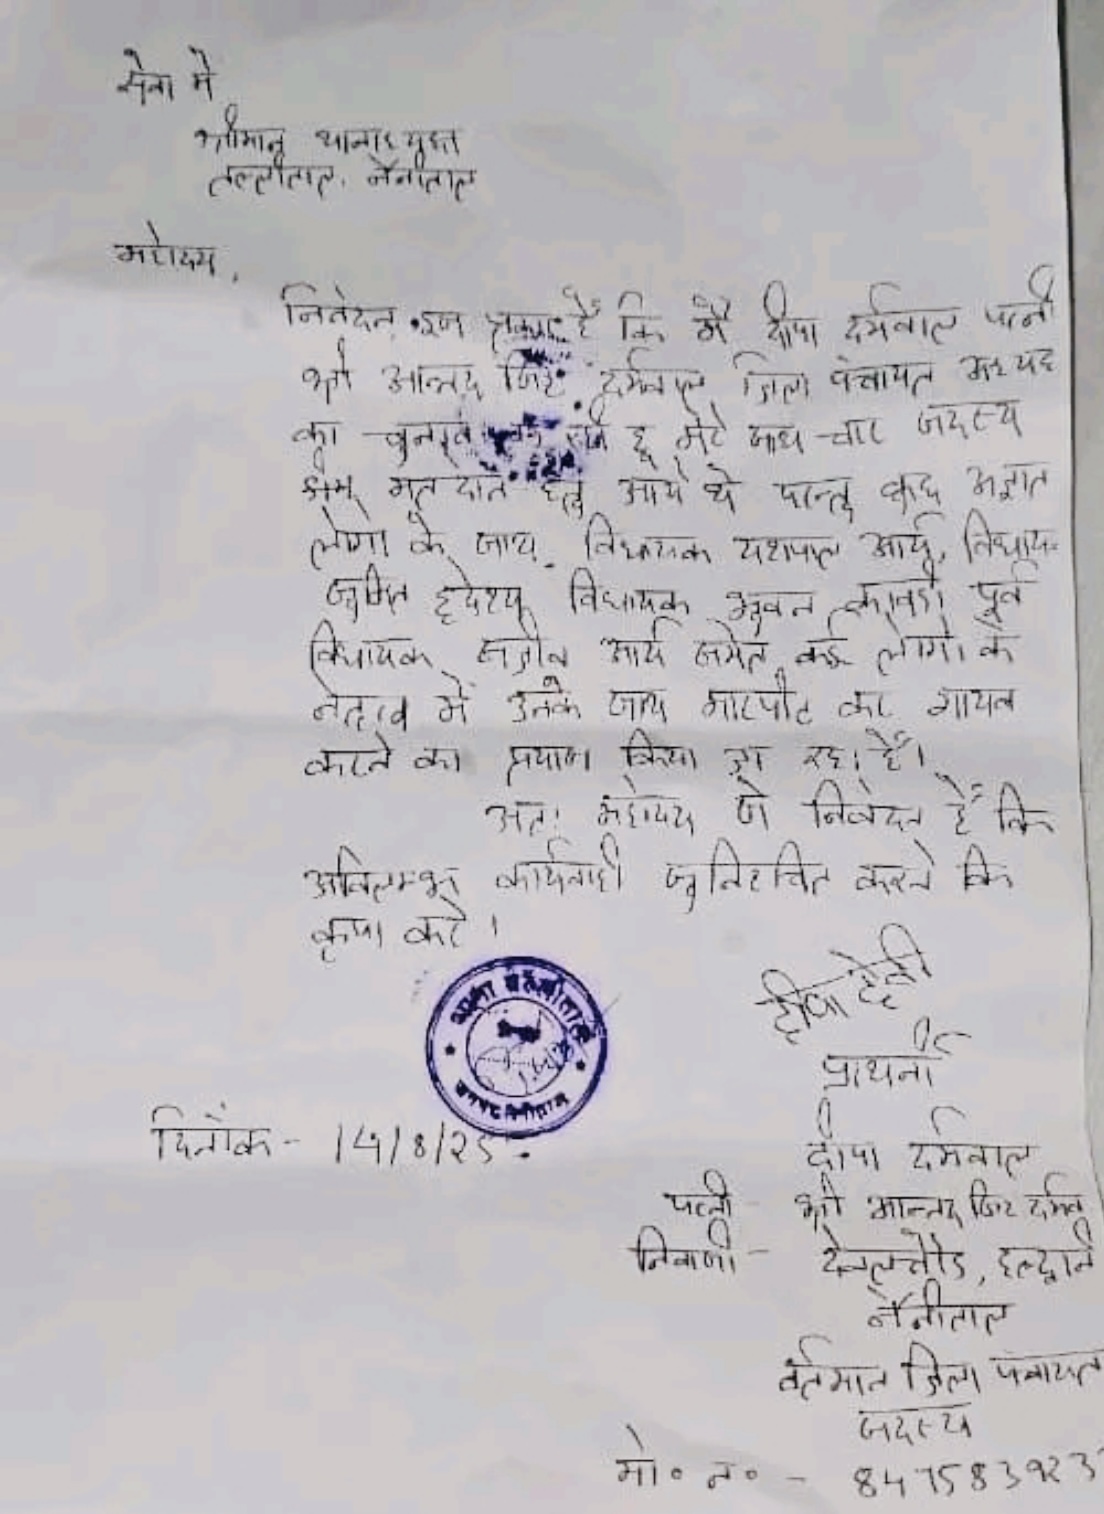 सेवा मे
श्रीमान थानाध्यक्ष
तल्लीताल, नैनीताल
महोदय,
निवेदन इस प्रकार है कि मै दीपा दर्मवाल पत्नी
श्री आनन्द सिंह दर्मवाल जिला पंचायत अध्यक्ष
का चुनाव लड़ रही हू मेरे साथ चार सदस्य
मतदान हेतु आये थे परन्तु कुछ अज्ञात
लोगो के साथ विधायक यशपाल आर्य, विधायक
सुमित हृदेश्य, विधायक भुवन कापडी पूर्व
विधायक संजीव आर्य समेत कई लोगो के
नेतृत्व में उनके साथ मारपीट कर गायब
करने का प्रयास किया जा रहा है।
अतः महोदय से निवेदन है कि
अविलम्भ कार्यवाही सुनिश्चित करने कि
कृपा करे।
दीपा देवी
प्राथनी
थाना तल्लीताल
जनपद नैनीताल
दिनाँक - 14/8/25
दीपा दर्मवाल
पत्नी - श्री आनन्द सिंह दर्मव
निवासी - देवलचौड, हल्द्वानी
नैनीताल
वर्तमान जिला पंचायत
सदस्य
मो० न० - 847583923